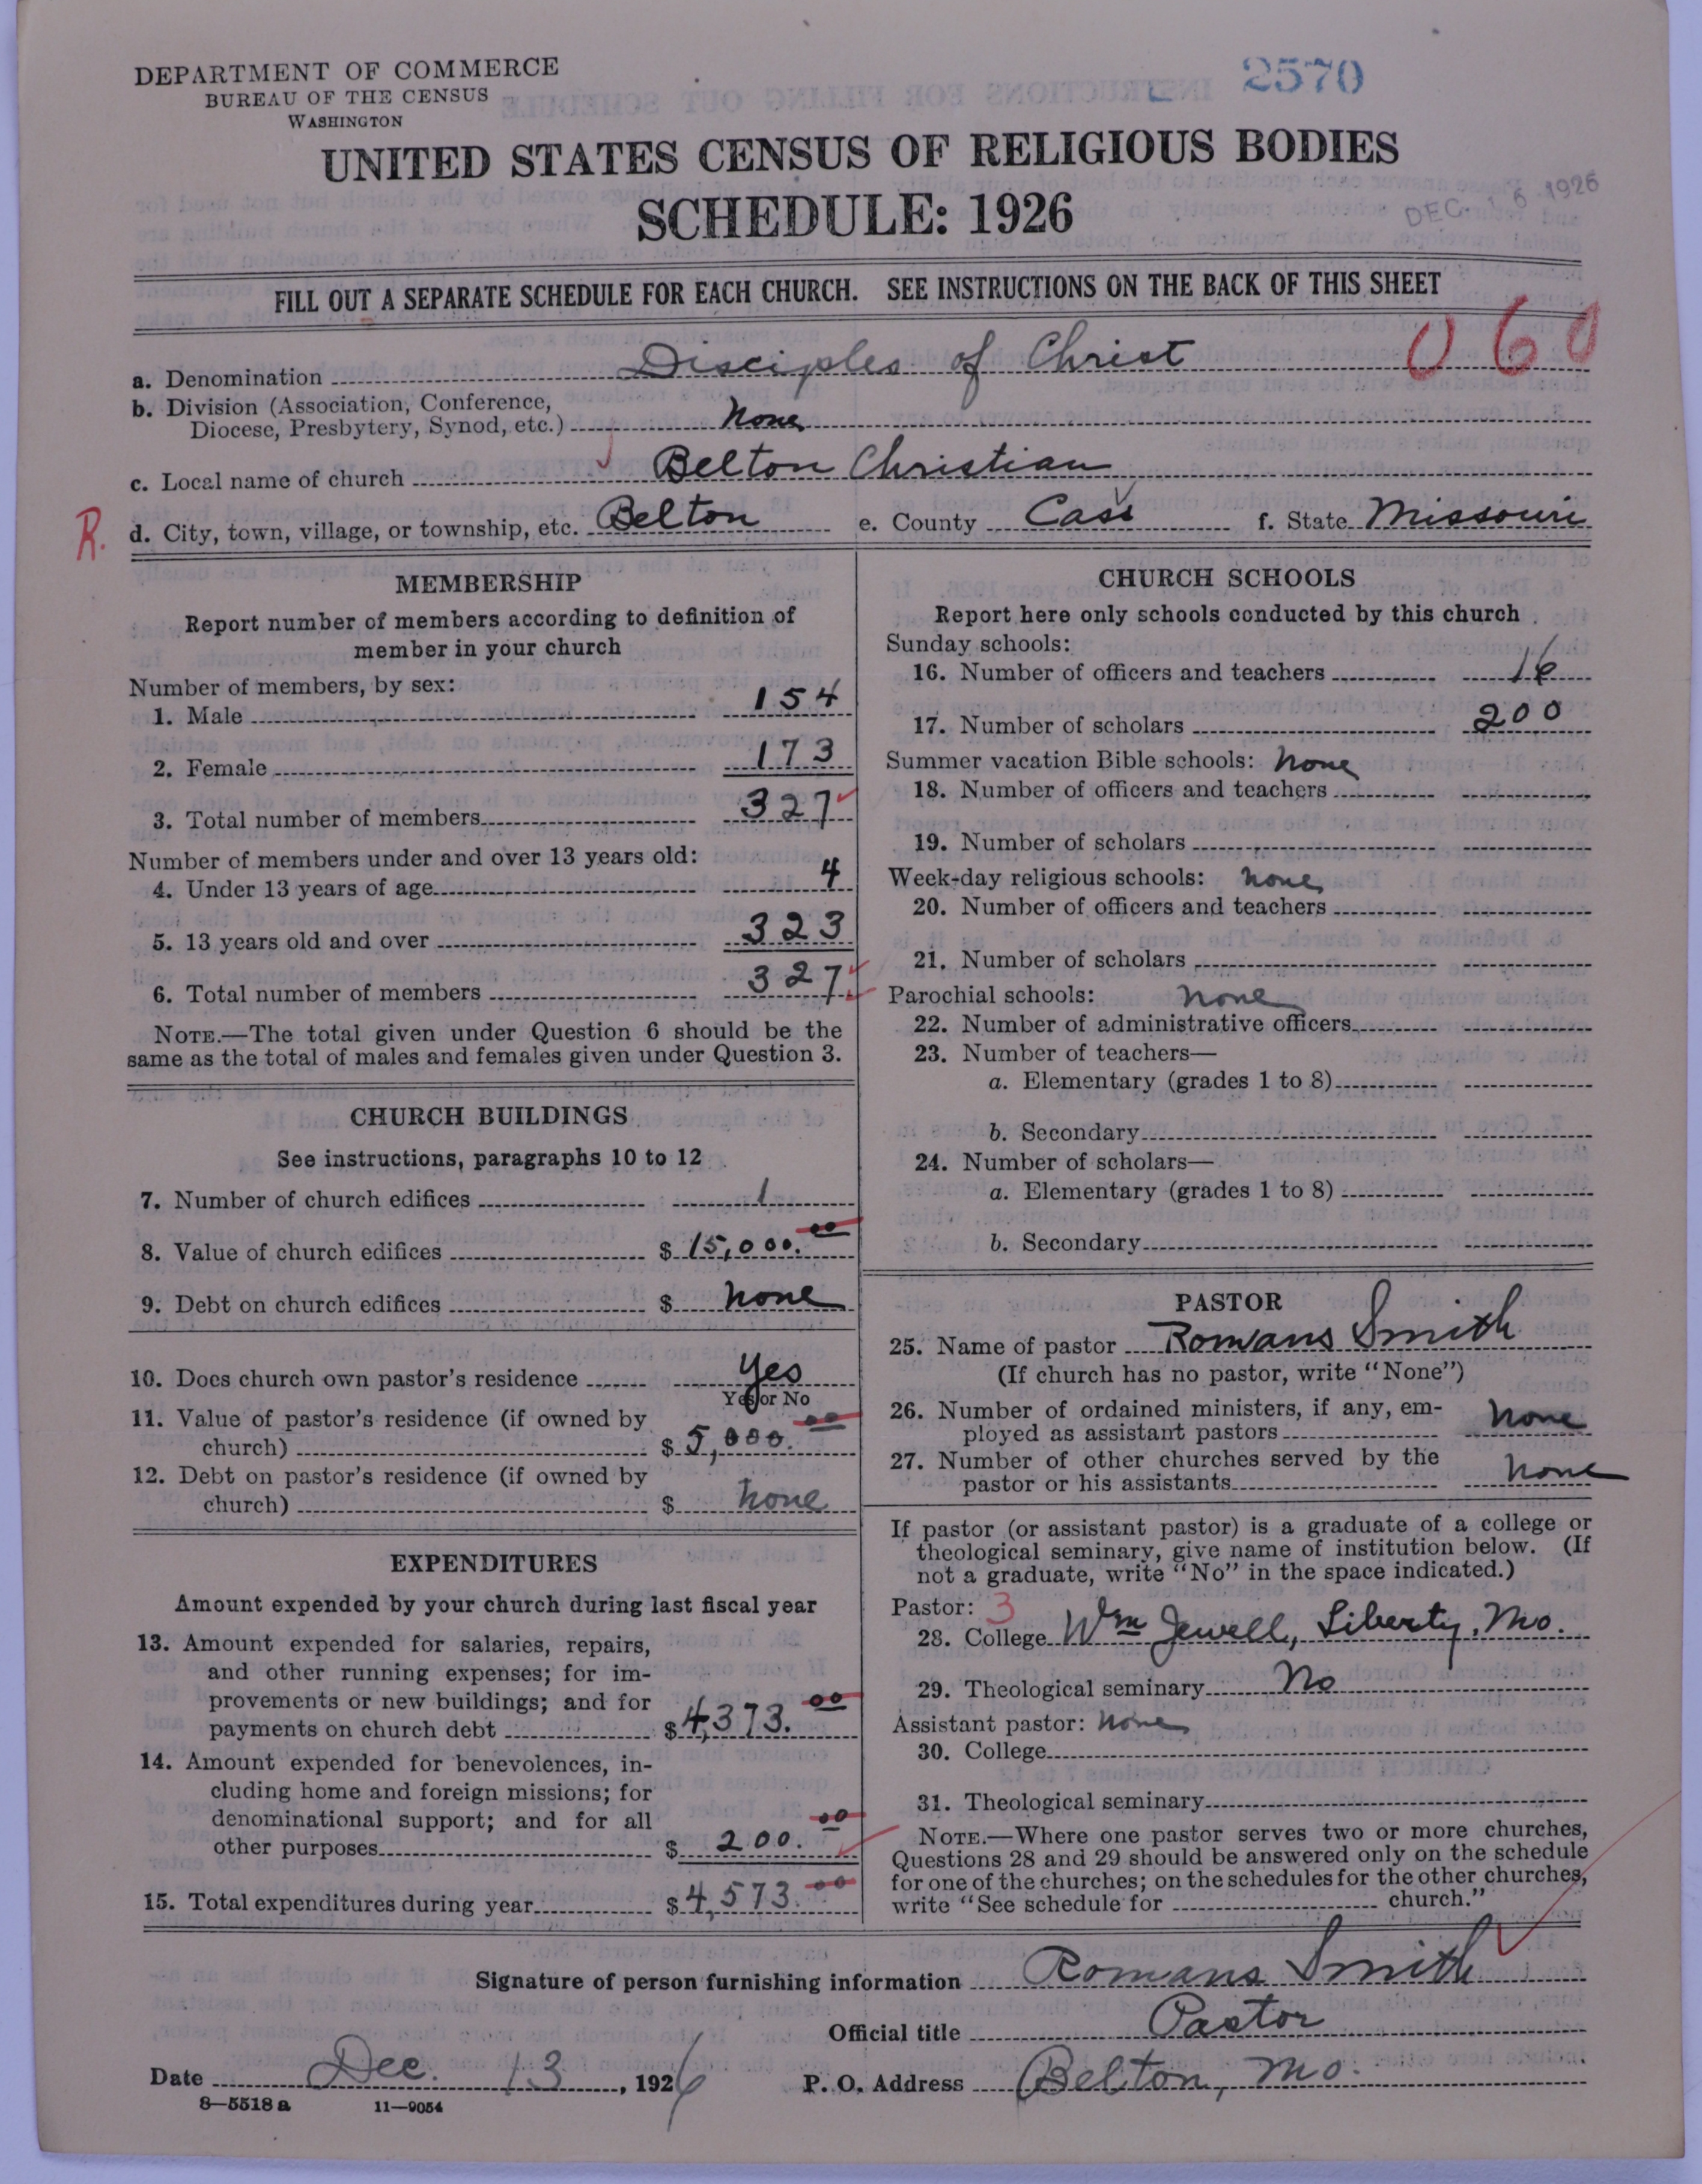 DEPARTMENT OF COMMERCE
BUREAU OF THE CENSUS
WASHINGTON
2570
UNITED STATES CENSUS OF RELIGIOUS BODIES
SCHEDULE: 1926
DEC. 16 1926
FILL OUT A SEPARATE SCHEDULE FOR EACH CHURCH. SEE INSTRUCTIONS ON THE BACK OF THIS SHEET
060
a. Denomination Disciples of Christ
b. Division (Association, Conference,
Diocese, Presbytery, Synod, etc.) None
c. Local name of church Belton Christian
R.
d. City, town, village, or township, etc. Belton e. County Cass f. State Missouri
MEMBERSHIP
Report number of members according to definition of
member in your church
Number of members, by sex:
1. Male 154
2. Female 173
3. Total number of members 327
Number of members under and over 13 years old:
4. Under 13 years of age 4
5. 13 years old and over 323
6. Total number of members 327
NOTE.—The total given under Question 6 should be the
same as the total of males and females given under Question 3.
CHURCH BUILDINGS
See instructions, paragraphs 10 to 12
7. Number of church edifices 1
8. Value of church edifices $ 15,000.00
9. Debt on church edifices $ none
10. Does church own pastor's residence Yes
Yes or No
11. Value of pastor's residence (if owned by
church) $ 5,000.00
12. Debt on pastor's residence (if owned by
church) $ none
EXPENDITURES
Amount expended by your church during last fiscal year
13. Amount expended for salaries, repairs,
and other running expenses; for im-
provements or new buildings; and for
payments on church debt $ 4,373.00
14. Amount expended for benevolences, in-
cluding home and foreign missions; for
denominational support; and for all
other purposes $ 200.00
15. Total expenditures during year $ 4,573.00
CHURCH SCHOOLS
Report here only schools conducted by this church
Sunday schools:
16. Number of officers and teachers 16
17. Number of scholars 200
Summer vacation Bible schools: None
18. Number of officers and teachers
19. Number of scholars
Week-day religious schools: none
20. Number of officers and teachers
21. Number of scholars
Parochial schools: none
22. Number of administrative officers
23. Number of teachers—
a. Elementary (grades 1 to 8)
b. Secondary
24. Number of scholars—
a. Elementary (grades 1 to 8)
b. Secondary
PASTOR
25. Name of pastor Romans Smith
(If church has no pastor, write "None")
26. Number of ordained ministers, if any, em-
ployed as assistant pastors None
27. Number of other churches served by the
pastor or his assistants None
If pastor (or assistant pastor) is a graduate of a college or
theological seminary, give name of institution below. (If
not a graduate, write "No" in the space indicated.)
Pastor: 3
28. College Wm Jewell, Liberty, Mo.
29. Theological seminary No
Assistant pastor: None
30. College
31. Theological seminary
NOTE.—Where one pastor serves two or more churches,
Questions 28 and 29 should be answered only on the schedule
for one of the churches; on the schedules for the other churches,
write "See schedule for church."
Signature of person furnishing information Romans Smith
Official title Pastor
Date Dec. 13, 1926 P. O. Address Belton, Mo.
8—5518 a 11—9054